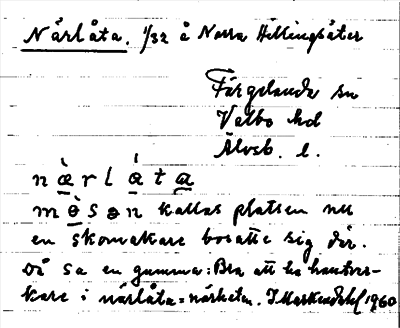 Nårlåta. 1/32 å Norra Hällingsäter
Färgelanda sn
Valbo hd
Älvsb. l.
n æ̀ r l ǻ t a
m ö̀ s ə n kallas platsen nu
en skomakare bosatte sig där.
Då sa en gumma: Bra att ha hantver-
kare i nårlåta = närheten. 1960